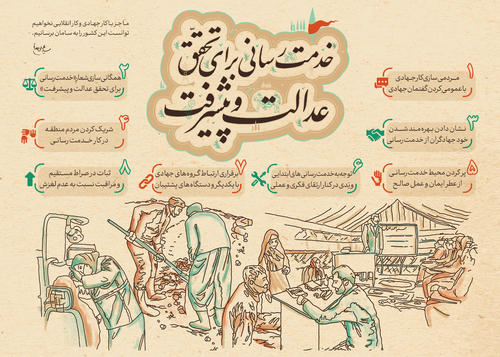 ما جز با کار جهادی و کار انقلابی نخواهیم
توانست این کشور را به سامان برسانیم.
خدمت رسانی برای تحقق
عدالت و پیشرفت
۱
مردمی سازی کار جهادی
با عمومی کردن گفتمان جهادی
۲
همگانی سازی شعار «خدمت رسانی
برای تحقق عدالت و پیشرفت»
۳
نشان دادن بهره مند شدن
خود جهادگران از خدمت رسانی
۴
شریک کردن مردم منطقه
در کار خدمت رسانی
۵
پر کردن محیط خدمت رسانی
از عطر ایمان و عمل صالح
۶
توجه به خدمت رسانی های ابتدایی
و یدی در کنار ارتقای فکری و عملی
۷
برقراری ارتباط گروه های جهادی
با یکدیگر و دستگاه های پشتیبان
۸
ثبات در صراط مستقیم
و مراقبت نسبت به عدم لغزش